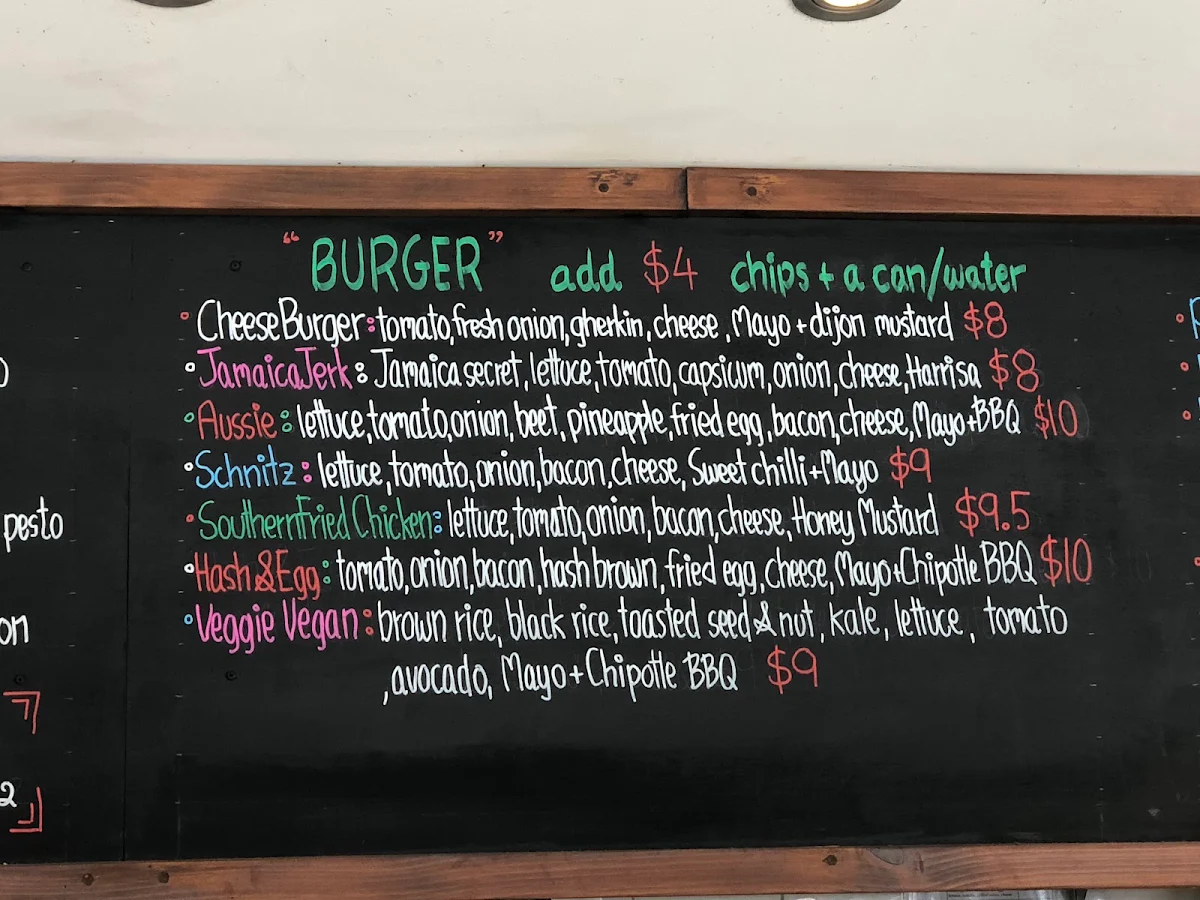 “BURGER” add $4 chips + a can/water
CheeseBurger: tomato, fresh onion, gherkin, cheese, Mayo + dijon mustard $8
JamaicaJerk: Jamaica secret, lettuce, tomato, capsicum, onion, cheese, Harrisa $8
Aussie: lettuce, tomato, onion, beet, pineapple, fried egg, bacon, cheese, Mayo+BBQ $10
Schnitz: lettuce, tomato, onion, bacon, cheese, Sweet chilli+Mayo $9
Southern Fried Chicken: lettuce, tomato, onion, bacon, cheese, Honey Mustard $9.5
Hash & Egg: tomato, onion, bacon, hash brown, fried egg, cheese, Mayo+Chipotle BBQ $10
Veggie Vegan: brown rice, black rice, toasted seed & nut, kale, lettuce, tomato
, avocado, Mayo+Chipotle BBQ $9
pesto
on
2